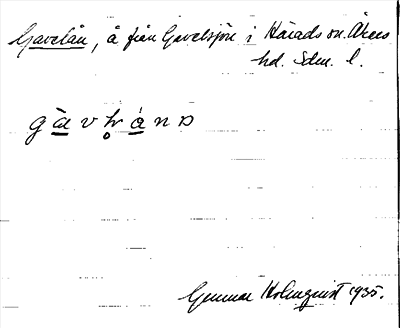 Gavelån, å från Gavelsjön i Härads sn. Åkers
hd. Sdm. l.
Gunnar Holmquist 1935.